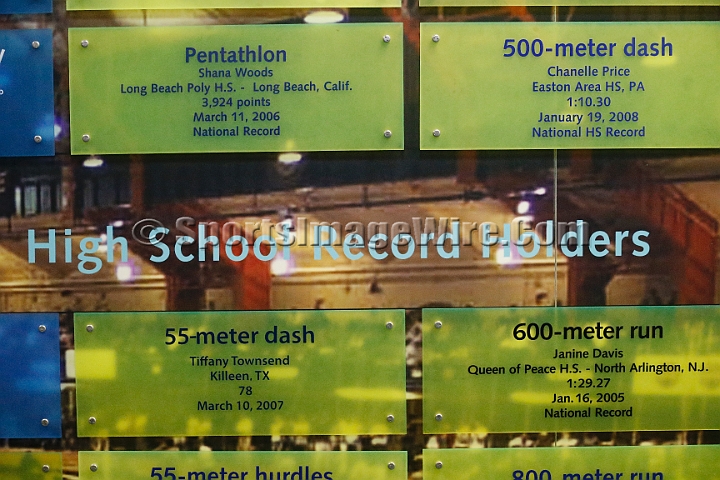 Pentathlon
Shana Woods
Long Beach Poly H.S. - Long Beach, Calif.
3,924 points
March 11, 2006
National Record
500-meter dash
Chanelle Price
Easton Area HS, PA
1:10.30
January 19, 2008
National HS Record
© SportsImageWire.Com
High School Record Holders
55-meter dash
Tiffany Townsend
Killeen, TX
78
March 10, 2007
600-meter run
Janine Davis
Queen of Peace H.S. - North Arlington, N.J.
1:29.27
Jan. 16, 2005
National Record
55-meter hurdles
800-meter run